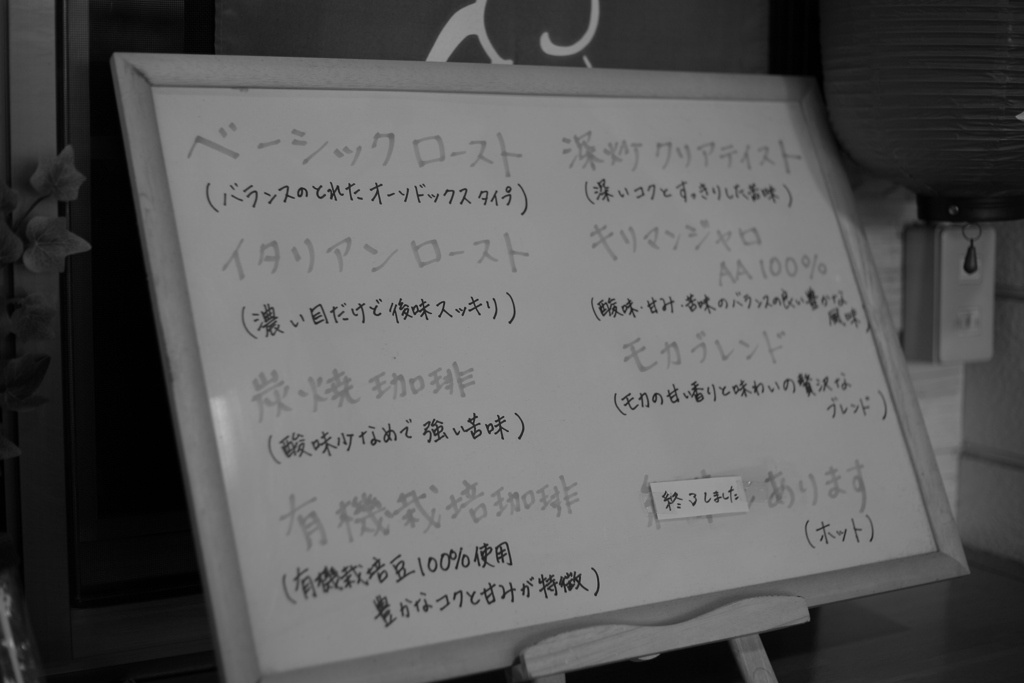 ベーシックロースト
(バランスのとれたオーソドックスタイプ)
イタリアンロースト
(濃い目だけど後味スッキリ)
炭火焼珈琲
(酸味少なめで強い苦味)
有機栽培珈琲
(有機栽培豆100%使用
豊かなコクと甘みが特徴)
深炒クリアテイスト
(深いコクとすっきりした苦味)
キリマンジャロ
AA100%
(酸味・甘み・苦味のバランスの良い豊かな
風味)
モカブレンド
(モカの甘い香りと味わいの贅沢な
ブレンド)
あります
終了しました
(ホット)